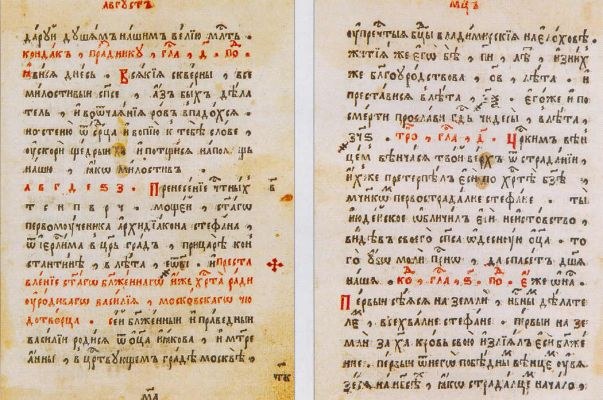 АВГУСТЪ
даруй душамъ нашимъ велїю мл҃ть
кондакъ, праднику, гла, д҃. по
ꙗвися днесь. Всякїя скверны, все
милостивыи сп҃се, азъ быхъ дѣла
тель, и во ѿчаянїя ровъ впадохся.
но стеню ѿ ср҃ца и вопїю к тебѣ слове,
ускори щедрыи и потщися на пол҃щь
нашю, ꙗкѡ милостивъ.
а в г д е ѕ з. Пренесенїе чтныхъ
мощеи, ст҃агѡ
первомученика архидїакона стефана,
ѿ їер҃лима в цр҃ь градъ, при цр҃ѣ кон
стантинѣ, в лѣта, и преста
вленїе ст҃агѡ бл҃женнагѡ иже хр҃та ради
уродивагѡ василїя, московскагѡ чю
дотворца. сеи бл҃женныи и праведныи
василїи родися ѿ оц҃а їакова, и мт҃ре
анны, в цр҃твующемъ градѣ москвѣ,
МЦ҃Ъ
у пречтыя бц҃ы владимирскїя на елоховѣ.
житїя же егѡ бѣ, лѣ, и з них
же бл҃гоуродствова, лѣта. и
преставися в лѣта, егѡ же и по
смерти прослави гд҃ь чюдесы, в лѣта,
тро, гла, д҃. Цр҃кимъ вѣн
цемъ вѣнчася твои верхъ ѿ страданїи,
ихже претерпѣлъ еси по хр҃тѣ бз҃ѣ,
мч҃никѡм первострадалне стефане. ты
июдейское обличилъ еси неистовство,
видѣвъ своего сп҃са ѡдесную оц҃а. то
го убѡ моли прн҃ѡ, да спасетъ дш҃а
нашя. ко, гла, ѕ҃. по. е҃же ѡ на
Первыи сѣяся на земли, нб҃ныи дѣлате
лѣ, всехвалне стефане. первыи на зе
мли за х҃а кровь свою излїялъ еси бл҃же
нне. первыи ѿ него побѣды вѣнцемъ обвя
зася на нб҃сѣхъ, ꙗкѡ страдалцемъ начало,